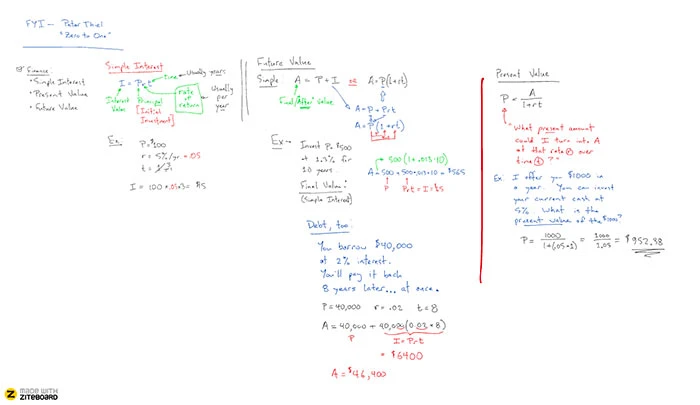 FYI — Peter Thiel
"Zero to One"
Finance:
• Simple Interest
• Present Value
• Future Value
Simple Interest
I = P·r·t
time
Usually years
Interest Value
Principal
[Initial Investment]
rate of return
Usually per year
Ex:
P = $100
r = 5%/yr = .05
I = 100·.05·3 = $15
Future Value
Simple: A = P + I or A = P(1+rt)
Final/"After" value
A = P + Prt
A = P(1+rt)
Ex — Invest P = $500
at 1.3% for
10 years.
Final Value:
(Simple Interest)
500(1+.013·10)
A = 500 + 500·.013·10 = $565
P
Prt = I = $65
Debt, too:
You borrow $40,000
at 2% interest.
You'll pay it back
8 years later... at once.
P = 40,000 r = .02 t = 8
A = 40,000 + 40,000(0.02*8)
P
I = Prt
= $6400
A = $46,400
Present Value
P = A/1+rt
"What present amount
could I turn into A
at that rate r over
time t?"
Ex: I offer you $1000 in
a year. You can invest
your current cash at
5%. What is the
present value of the $1000?
P = 1000/(1+(.05*1) = 1000/1.05 = $952.38
MADE WITH
ZITEBOARD